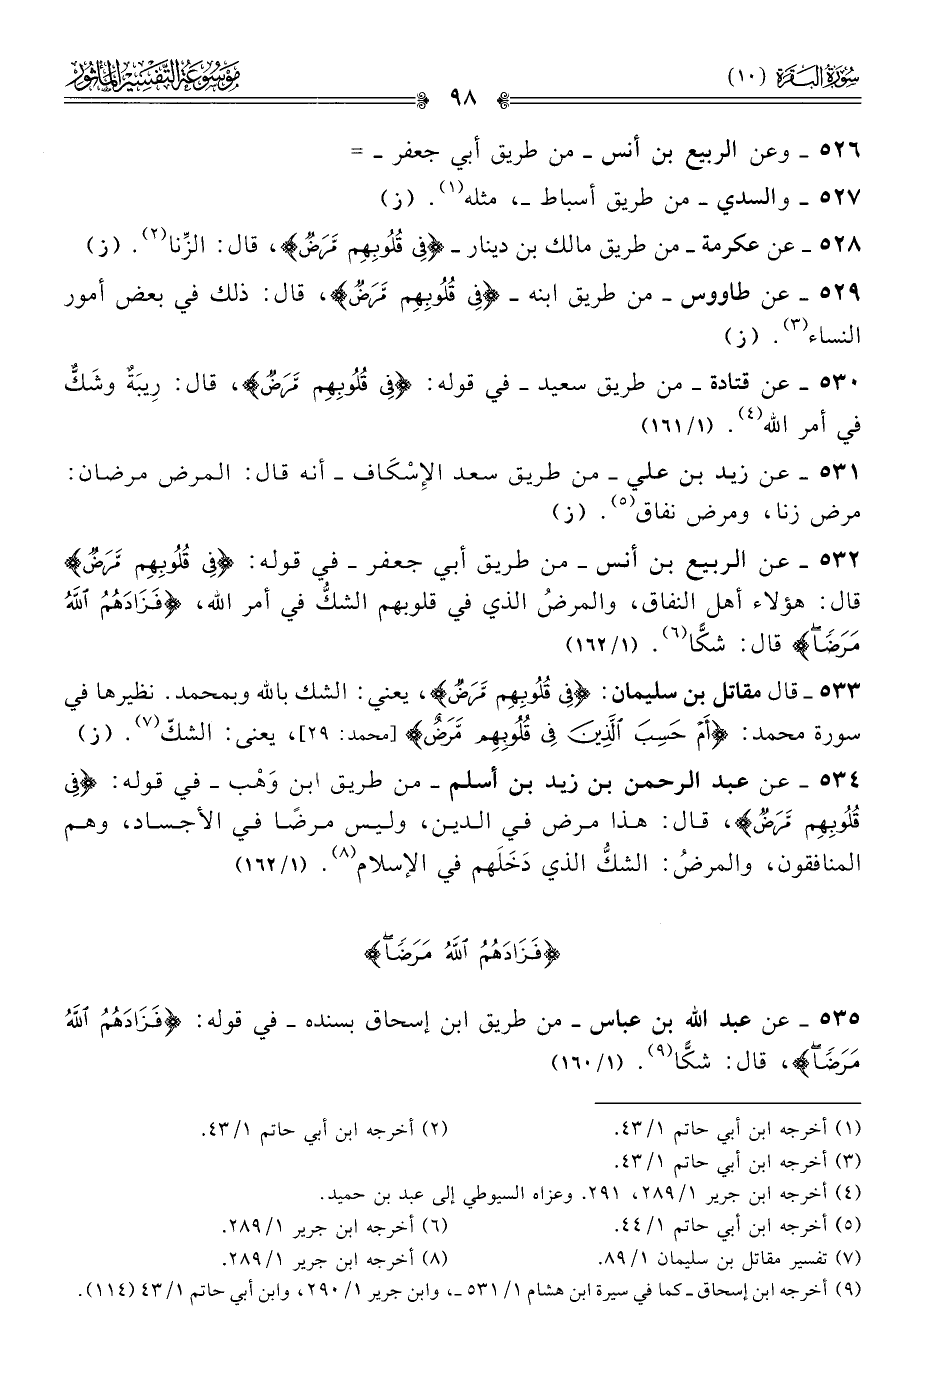 سُورَةُ البَقَرَةِ (١٠)
٩٨
مَوْسُوعَةُ التَّفْسِيرِ المَأْثُورِ
٥٢٦ ـ وعن الربيع بن أنس ـ من طريق أبي جعفر ـ =
٥٢٧ ـ والسدي ـ من طريق أسباط ـ، مثله(١). (ز)
٥٢٨ ـ عن عكرمة ـ من طريق مالك بن دينار ـ ﴿فِى قُلُوبِهِم مَّرَضٌ﴾، قال: الزِّنا(٢). (ز)
٥٢٩ ـ عن طاووس ـ من طريق ابنه ـ ﴿فِى قُلُوبِهِم مَّرَضٌ﴾، قال: ذلك في بعض أمور
النساء(٣). (ز)
٥٣٠ ـ عن قتادة ـ من طريق سعيد ـ في قوله: ﴿فِى قُلُوبِهِم مَّرَضٌ﴾، قال: رِيبَةٌ وشَكٌّ
في أمر الله(٤). (١٦١/١)
٥٣١ ـ عن زيد بن علي ـ من طريق سعد الإِسْكَاف ـ أنه قال: المرض مرضان:
مرض زنا، ومرض نفاق(٥). (ز)
٥٣٢ ـ عن الربيع بن أنس ـ من طريق أبي جعفر ـ في قوله: ﴿فِى قُلُوبِهِم مَّرَضٌ﴾
قال: هؤلاء أهل النفاق، والمرضُ الذي في قلوبهم الشكُّ في أمر الله، ﴿فَزَادَهُمُ ٱللَّهُ
مَرَضًاۖ﴾ قال: شكًّا(٦). (١٦٢/١)
٥٣٣ ـ قال مقاتل بن سليمان: ﴿فِى قُلُوبِهِم مَّرَضٌ﴾، يعني: الشك بالله وبمحمد. نظيرها في
سورة محمد: ﴿أَمْ حَسِبَ ٱلَّذِينَ فِى قُلُوبِهِم مَّرَضٌ﴾ [محمد: ٢٩]، يعني: الشكّ(٧). (ز)
٥٣٤ ـ عن عبد الرحمن بن زيد بن أسلم ـ من طريق ابن وَهْب ـ في قوله: ﴿فِى
قُلُوبِهِم مَّرَضٌ﴾، قال: هذا مرض في الدين، وليس مرضًا في الأجساد، وهم
المنافقون، والمرضُ: الشكُّ الذي دَخَلَهم في الإسلام(٨). (١٦٢/١)
﴿فَزَادَهُمُ ٱللَّهُ مَرَضًاۖ﴾
٥٣٥ ـ عن عبد الله بن عباس ـ من طريق ابن إسحاق بسنده ـ في قوله: ﴿فَزَادَهُمُ ٱللَّهُ
مَرَضًاۖ﴾، قال: شكًّا(٩). (١٦٠/١)
(١) أخرجه ابن أبي حاتم ٤٣/١. (٢) أخرجه ابن أبي حاتم ٤٣/١.
(٣) أخرجه ابن أبي حاتم ٤٣/١.
(٤) أخرجه ابن جرير ٢٨٩/١، ٢٩١. وعزاه السيوطي إلى عبد بن حميد.
(٥) أخرجه ابن أبي حاتم ٤٤/١. (٦) أخرجه ابن جرير ٢٨٩/١.
(٧) تفسير مقاتل بن سليمان ٨٩/١. (٨) أخرجه ابن جرير ٢٨٩/١.
(٩) أخرجه ابن إسحاق ـ كما في سيرة ابن هشام ٥٣١/١ ـ، وابن جرير ٢٩٠/١، وابن أبي حاتم ٤٣/١ (١١٤).